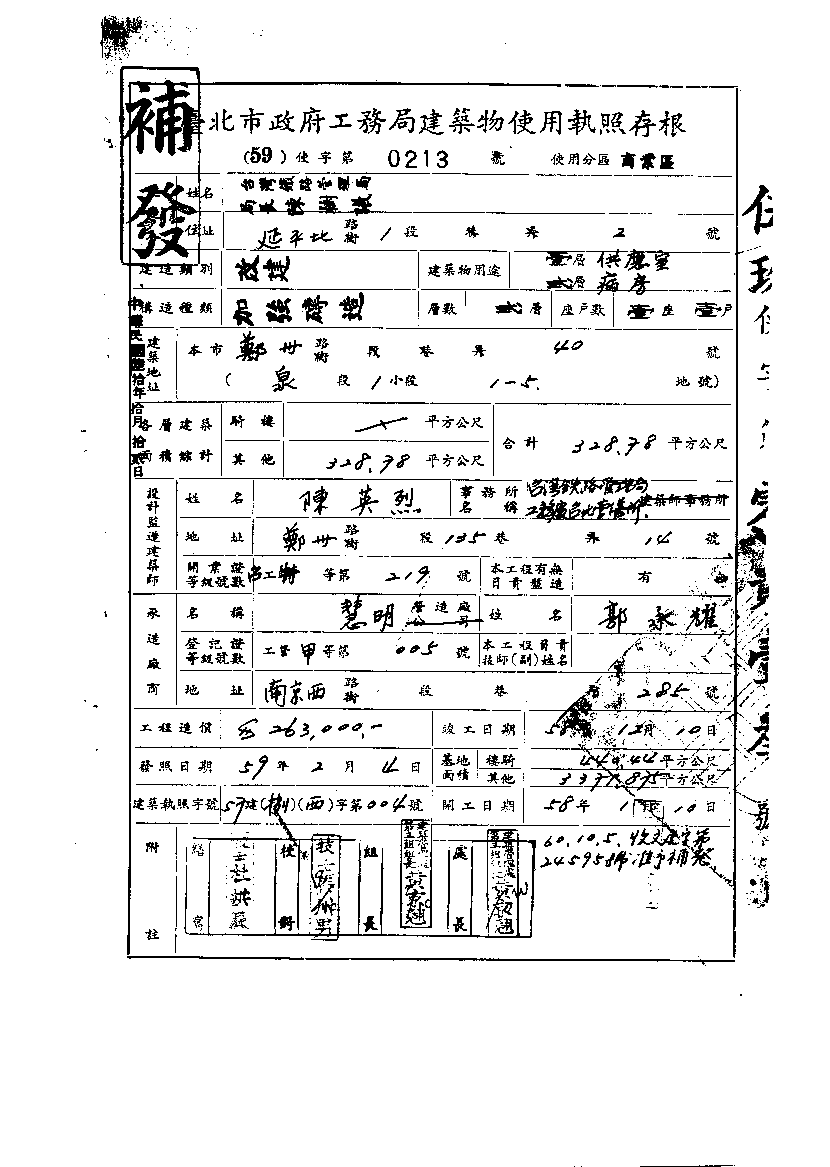 補發
臺北市政府工務局建築物使用執照存根
(59) 使字第 0213 號 使用分區 商業區
姓名 台灣鐵路管理局
局長陳
住址 延平北 路街 1 段 巷 弄 2 號
建造類別 改建 建築物用途 壹層 供應室
貳層 病房
構造種類 加強磚造 層數 貳層 座戶數 壹座 壹戶
建築地址 本市 鄭州 路街 段 巷 弄 40 號
( 泉 段 1 小段 1-5. 地號)
各層建築面積總計 騎樓 平方公尺 合計 328.78 平方公尺
其他 328.78 平方公尺
設計監造建築師 姓名 陳英烈 事務所名稱 台灣鐵路管理局
建築師事務所
地址 鄭州 路街 段 135 巷 弄 14 號
開業證等級號數 等第 219 號 本工程有無日責監造 有
承造廠商 名稱 慧明 營造廠公司 姓名 郭承耀
登記證等級號數 工營甲等第 005 號 本工程負責技師(副)姓名
地址 南京西 路街 段 巷 285 號
工程造價 263,000.- 竣工日期 58年 12月 10日
發照日期 59年 2月 4日 基地面積 樓騎 440.44 平方公尺
其他 3371.875 平方公尺
建築執照字號 59建( )(西)字第004號 開工日期 58年 1月 10日
附註 60.10.5.收文 字第
245958號准予補發
中華民國陸拾年拾月拾貳日
校對 組長 處長